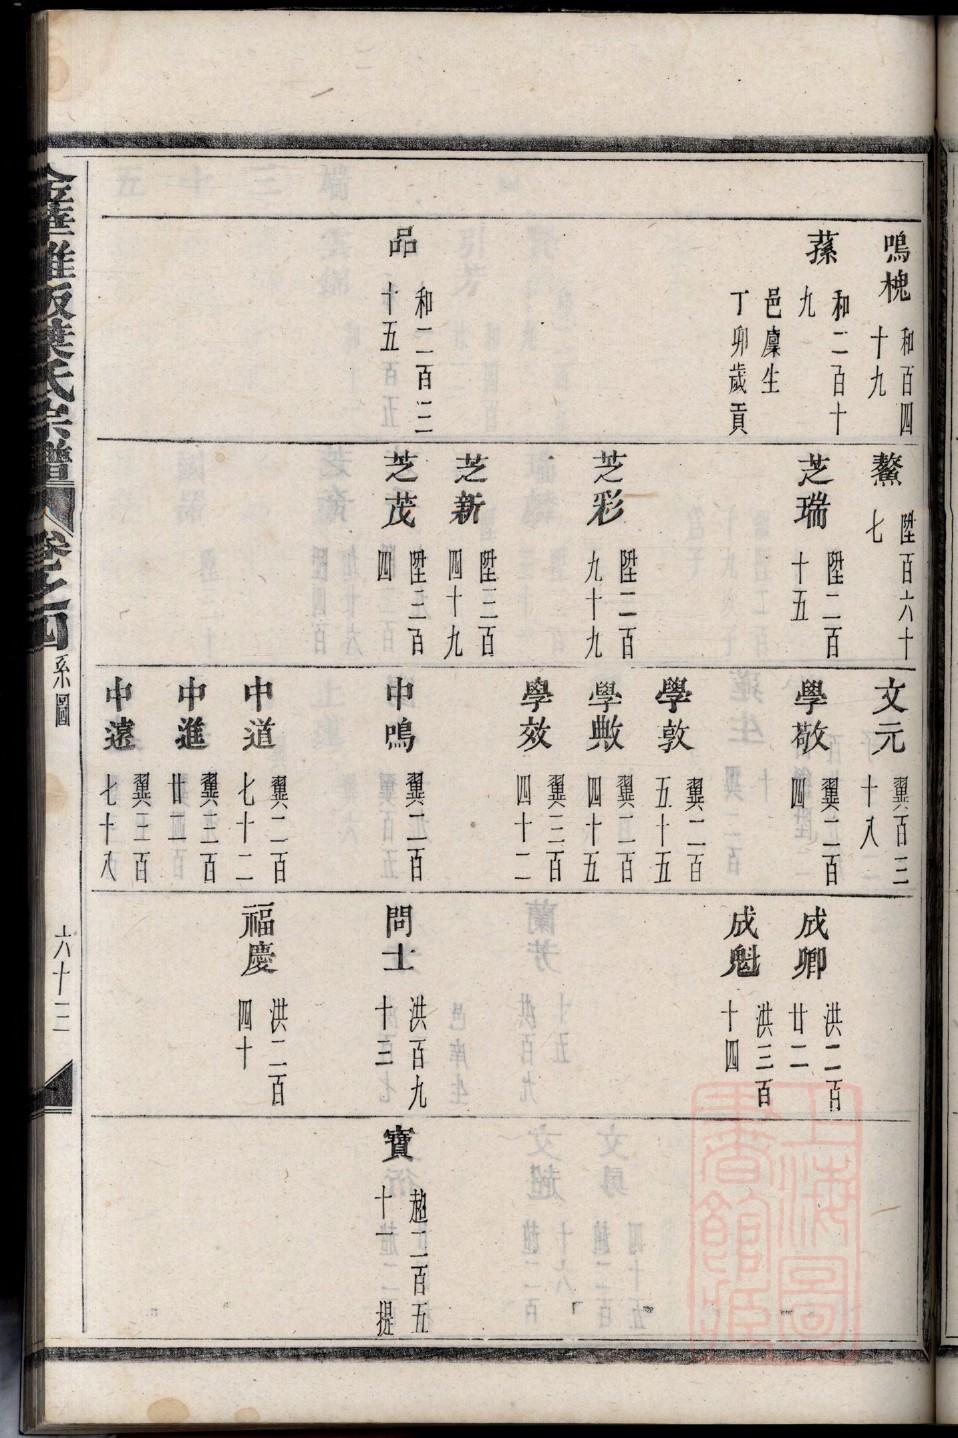 鳴槐
和百四
十九
蓀
和二百十
九
邑廩生
丁卯歲貢
品
和二百三
十五
鰲
陞百六十
七
芝瑞
陞二百
十五
芝彩
陞二百
九十九
芝新
陞三百
四十九
芝茂
陞三百
四
文元
翼百三
十八
學敬
翼二百
四
學敦
翼二百
五十五
學敟
翼三百
四十五
學效
翼三百
四十二
中鳴
翼二百
中道
翼二百
七十二
中進
翼三百
廿四
中遠
翼三百
七十八
成卿
洪二百
廿二
成魁
洪三百
十四
問士
洪百九
十三
福慶
洪二百
四十
寶
超二百五
十一 提
金華雅畈葉氏宗譜
卷之四
系圖
六十三
上海圖書館藏